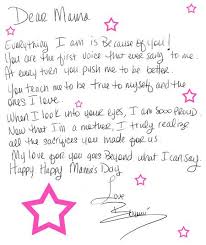 Dear Mama
Everything I am is Because of you!
You are the first voice that ever sang to me.
At every turn you push me to be better.
You teach me to be true to myself and the
ones I love.
When I look into your eyes, I am SOOO PROUD.
Now that I'm a mother, I truly realize
all the sacrifices you made for us
My love for you goes Beyond what I can say.
Happy Happy Mama's Day
Love